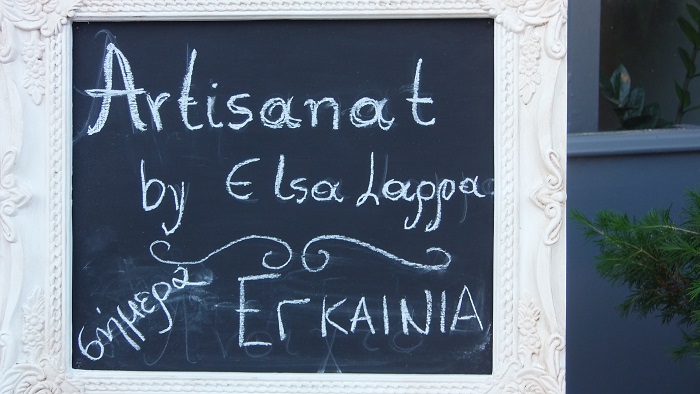 Artisanat
by Elsa Lappa
σήμερα
ΕΓΚΑΙΝΙΑ